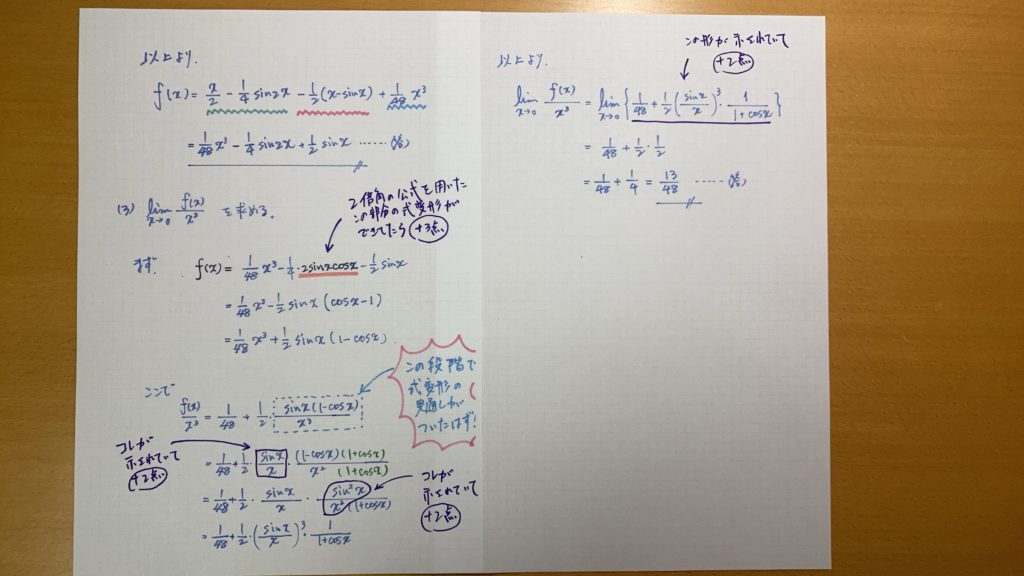 以上より.
f(x) = x/2 - 1/4 sin2x - 1/2(x-sinx) + 1/48 x³
= 1/48 x³ - 1/4 sin2x + 1/2 sinx ……(答)
(3) lim x→0 f(x)/x³ を求める.
2倍角の公式を用いた
この部分の式変形が
できてたら +3点
まず. f(x) = 1/48 x³ - 1/4・2sinxcosx - 1/2 sinx
= 1/48 x³ - 1/2 sinx (cosx-1)
= 1/48 x³ + 1/2 sinx (1-cosx).
この段階で
式変形の
見通しが
ついたはず!
ここで
f(x)/x³ = 1/48 + 1/2・sinx(1-cosx)/x³
コレが
示されていて
+2点
= 1/48 + 1/2・sinx/x・(1-cosx)(1+cosx)/x²(1+cosx)
コレが
示されていて
+2点
= 1/48 + 1/2・sinx/x・sin²x/x²(1+cosx)
= 1/48 + 1/2・(sinx/x)³・1/1+cosx
以上より.
この形が示されていて
+2点
lim x→0 f(x)/x³ = lim x→0 {1/48 + 1/2(sinx/x)³・1/1+cosx}
= 1/48 + 1/2・1/2
= 1/48 + 1/4 = 13/48 ……(答)